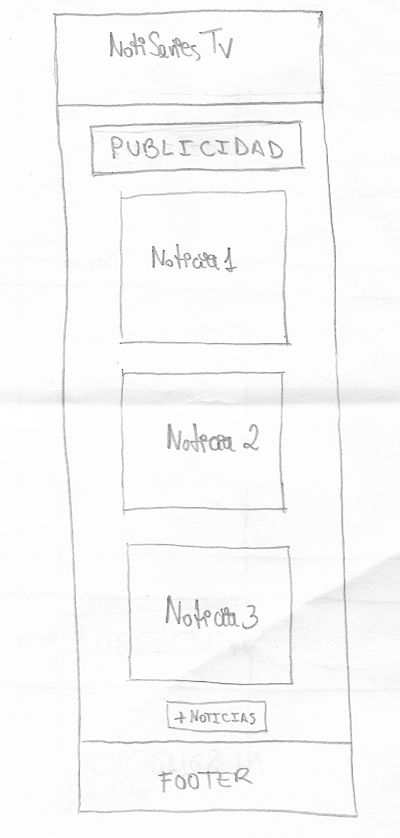 NotiSeries TV
PUBLICIDAD
Noticia 1
Noticia 2
Noticia 3
+ NOTICIAS
FOOTER